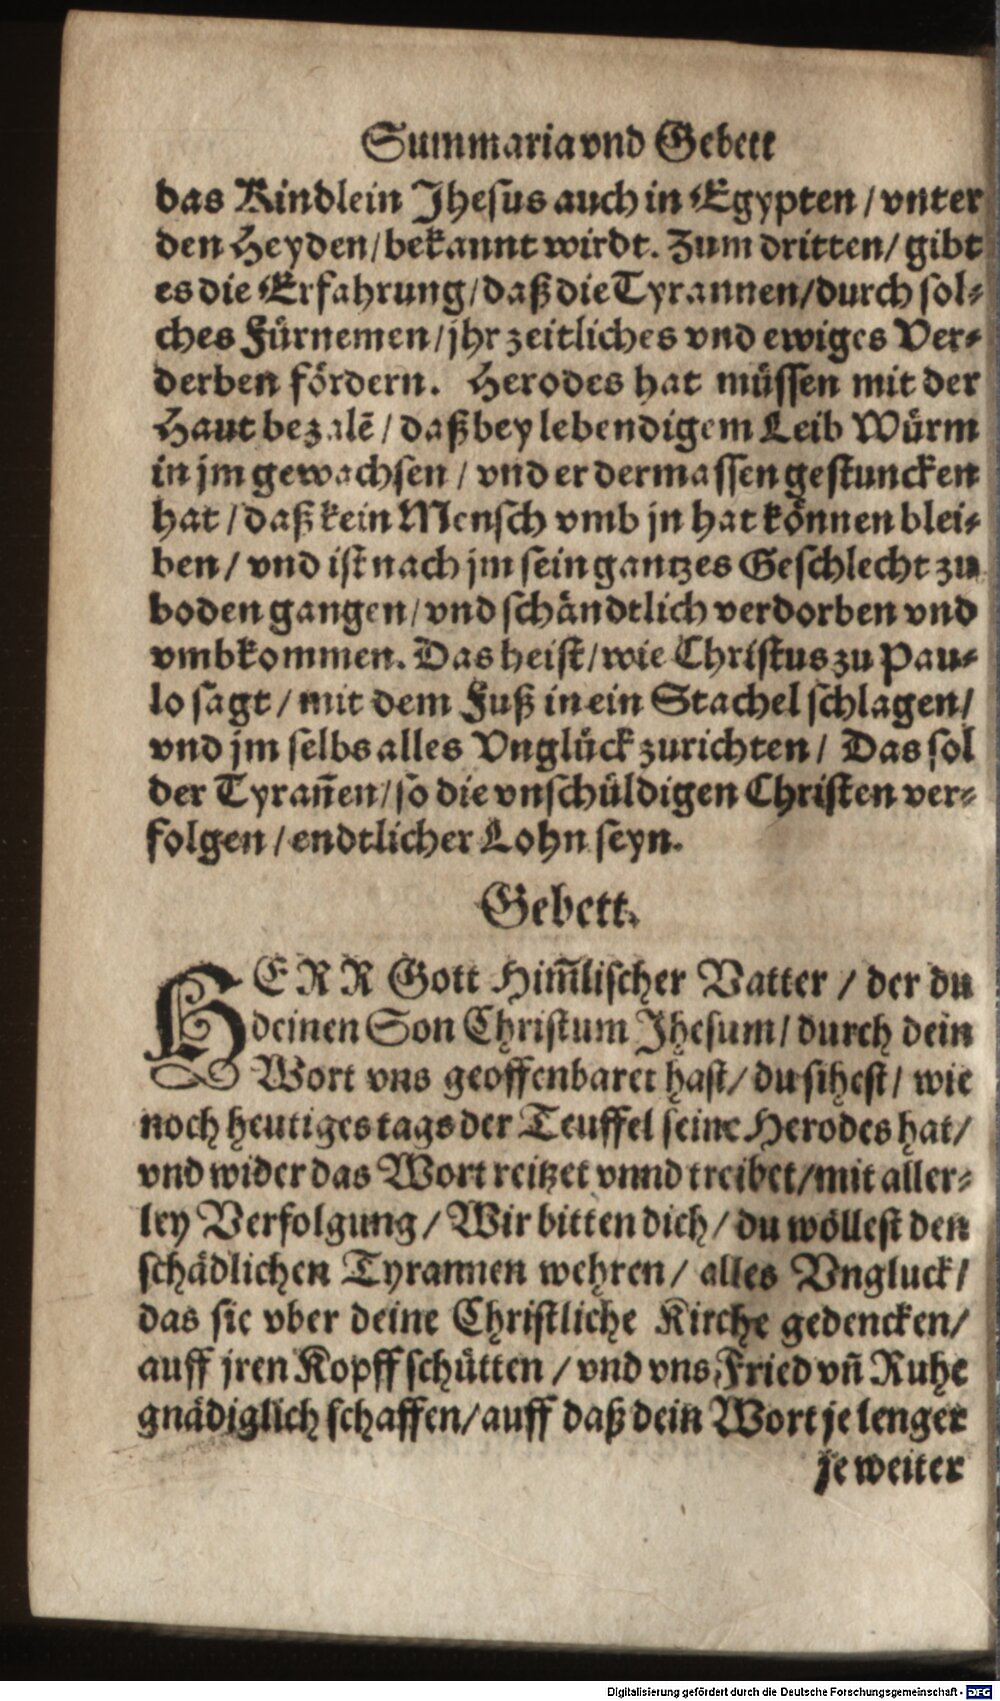 Summaria vnd Gebett
das Kindlein Jhesus auch in Egypten / vnter
den Heyden / bekannt wirdt. Zum dritten / gibt
es die Erfahrung / daß die Tyrannen / durch sol⸗
ches Fürnemen / jhr zeitliches vnd ewiges Ver⸗
derben fördern. Herodes hat müssen mit der
Haut bezalẽ / daß bey lebendigem Leib Würm
in jm gewachsen / vnd er dermassen gestuncken
hat / daß kein Mensch vmb jn hat können blei⸗
ben / vnd ist nach jm sein gantzes Geschlecht zu
boden gangen / vnd schändtlich verdorben vnd
vmbkommen. Das heist / wie Christus zu Pau⸗
lo sagt / mit dem Fuß in ein Stachel schlagen /
vnd jm selbs alles Vnglück zurichten / Das sol
der Tyrañen / so die vnschüldigen Christen ver⸗
folgen / endtlicher Lohn seyn.
Gebett.
HERR Gott Him̃lischer Vatter / der du
deinen Son Christum Jhesum / durch dein
Wort vns geoffenbaret hast / du sihest / wie
noch heutiges tags der Teuffel seine Herodes hat /
vnd wider das Wort reitzet vnnd treibet / mit aller⸗
ley Verfolgung / Wir bitten dich / du wöllest den
schädlichen Tyrannen wehren / alles Vngluck /
das sie vber deine Christliche Kirche gedencken /
auff jren Kopff schütten / vnd vns Fried vñ Ruhe
gnädiglich schaffen / auff daß dein Wort je lenger
je weiter
Digitalisierung gefördert durch die Deutsche Forschungsgemeinschaft - DFG